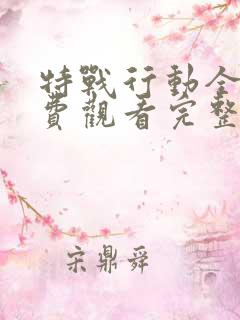 特戰行動全
費觀看完整
宋鼎舜